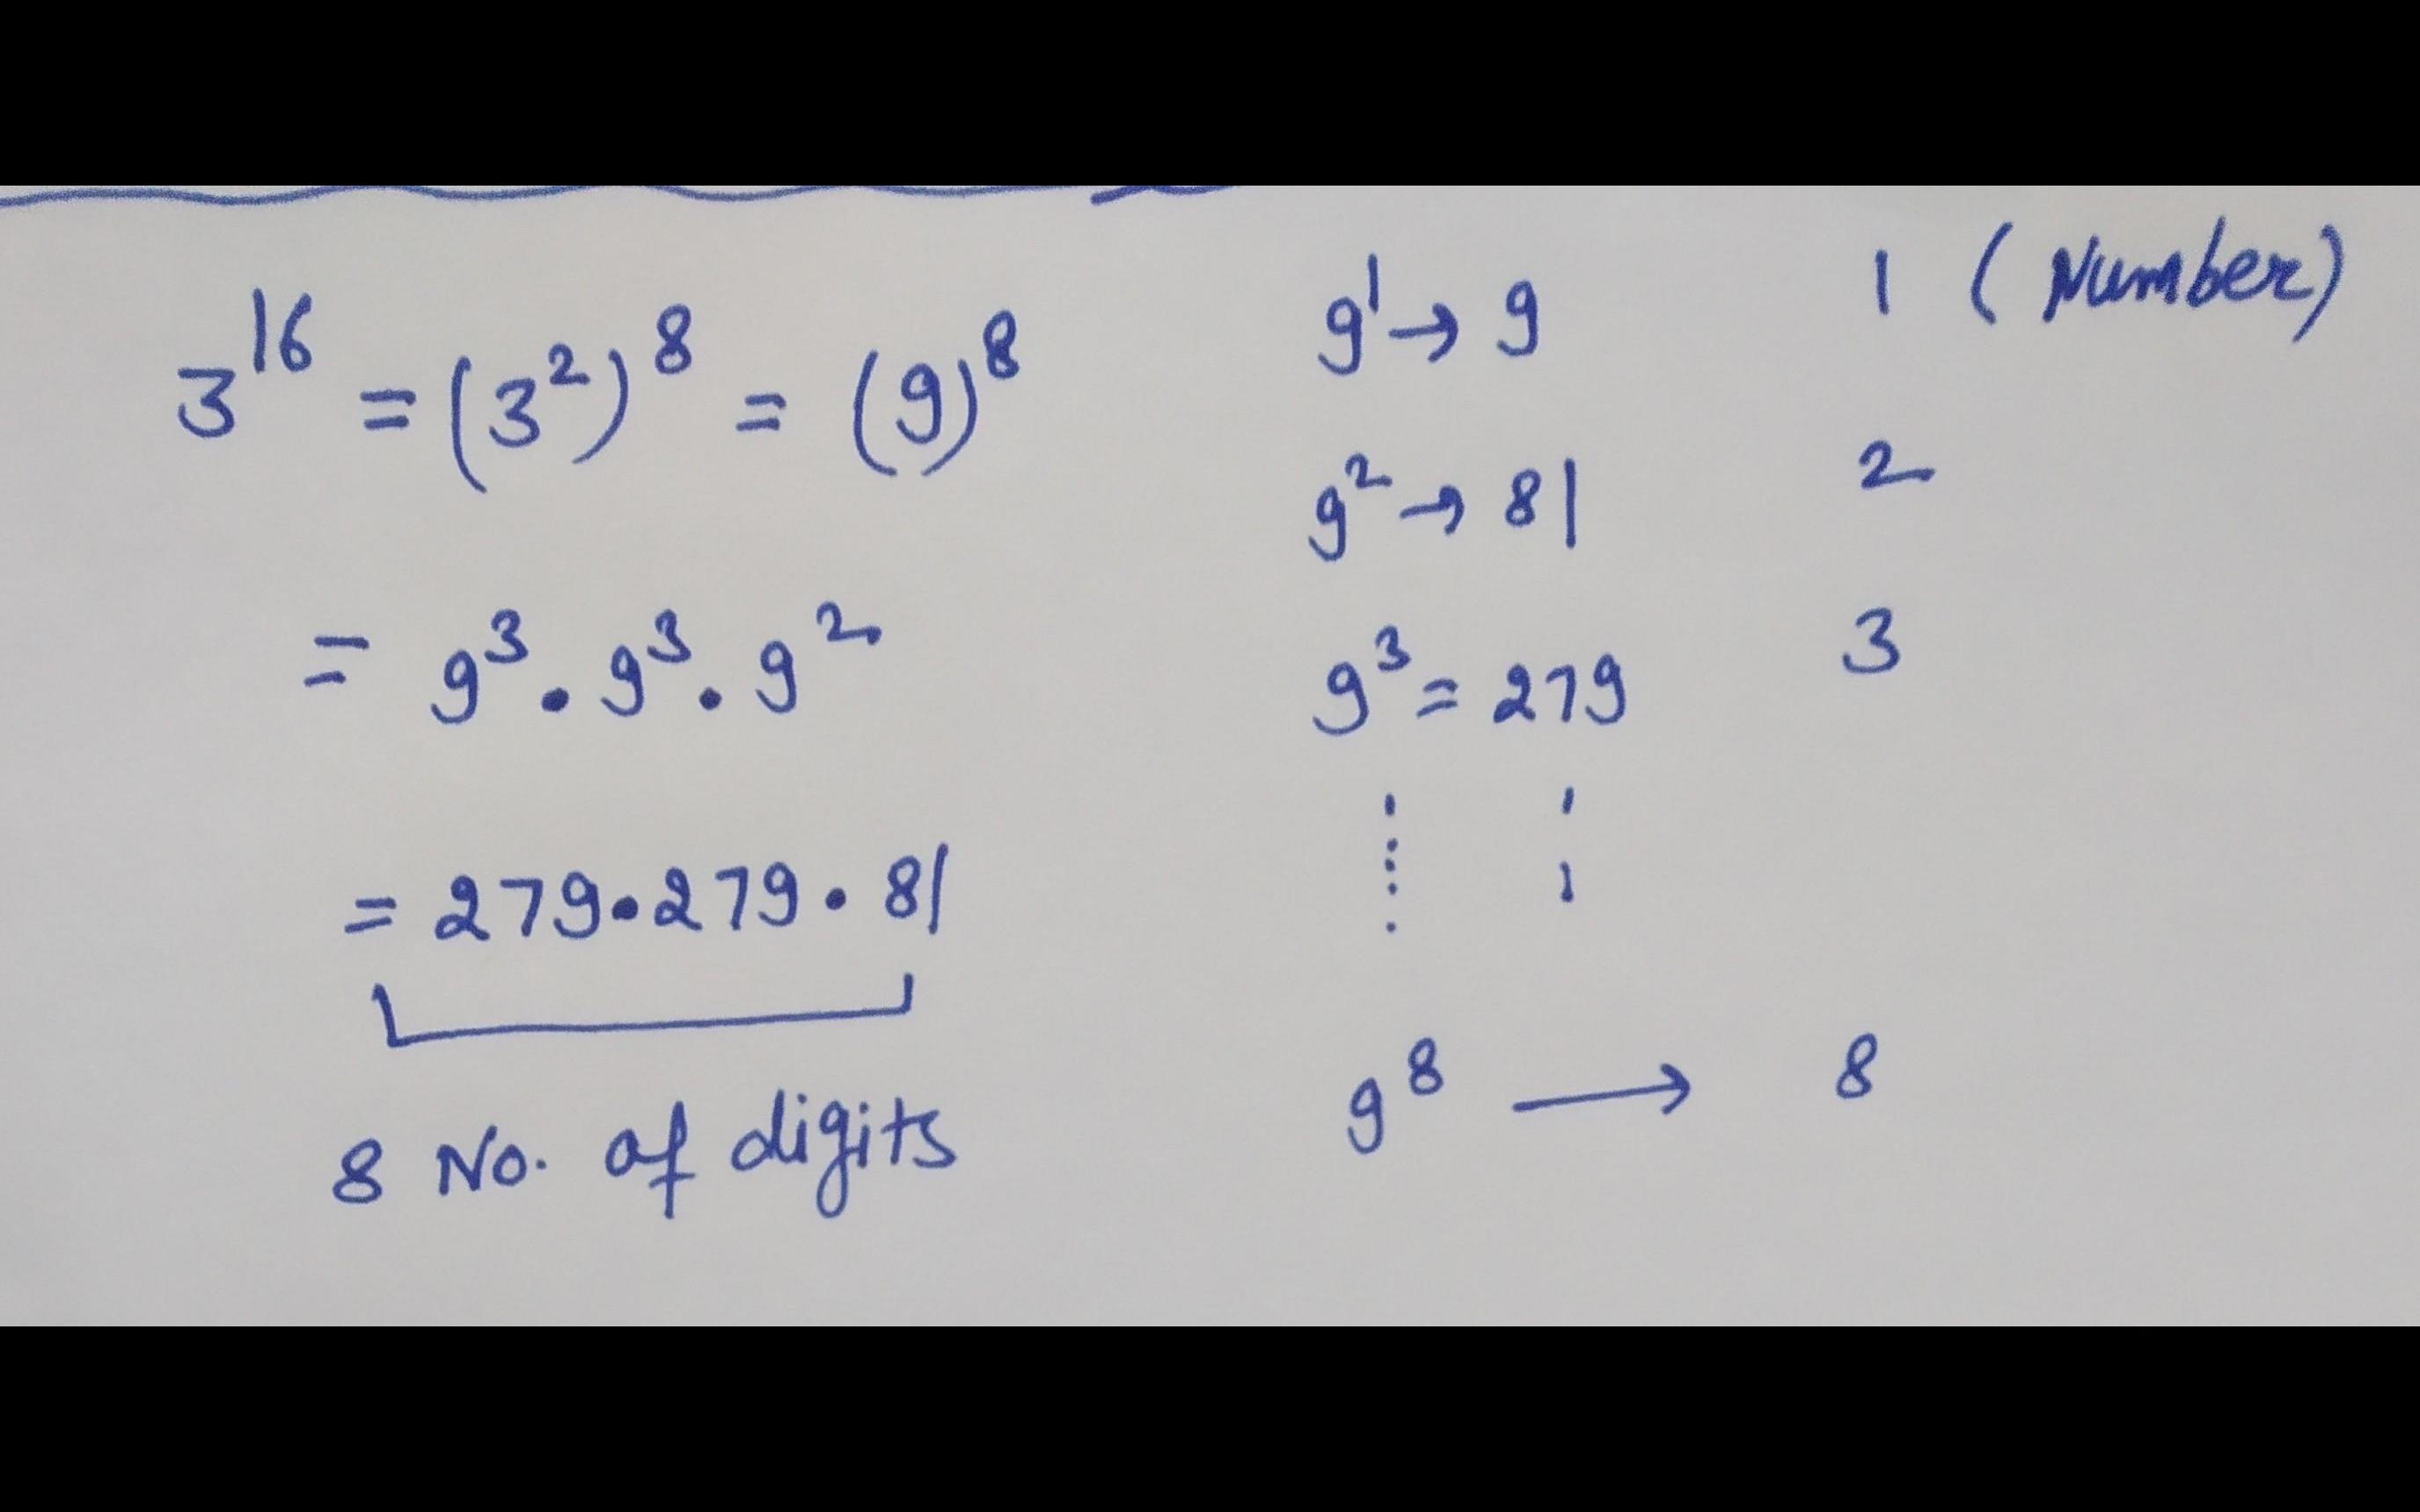 3^16 = (3^2)^8 = (9)^8
= 9^3 . 9^3 . 9^2
= 279 . 279 . 81
8 No. of digits
9^1 → 9 1 (Number)
9^2 → 81 2
9^3 = 279 3
9^8 → 8